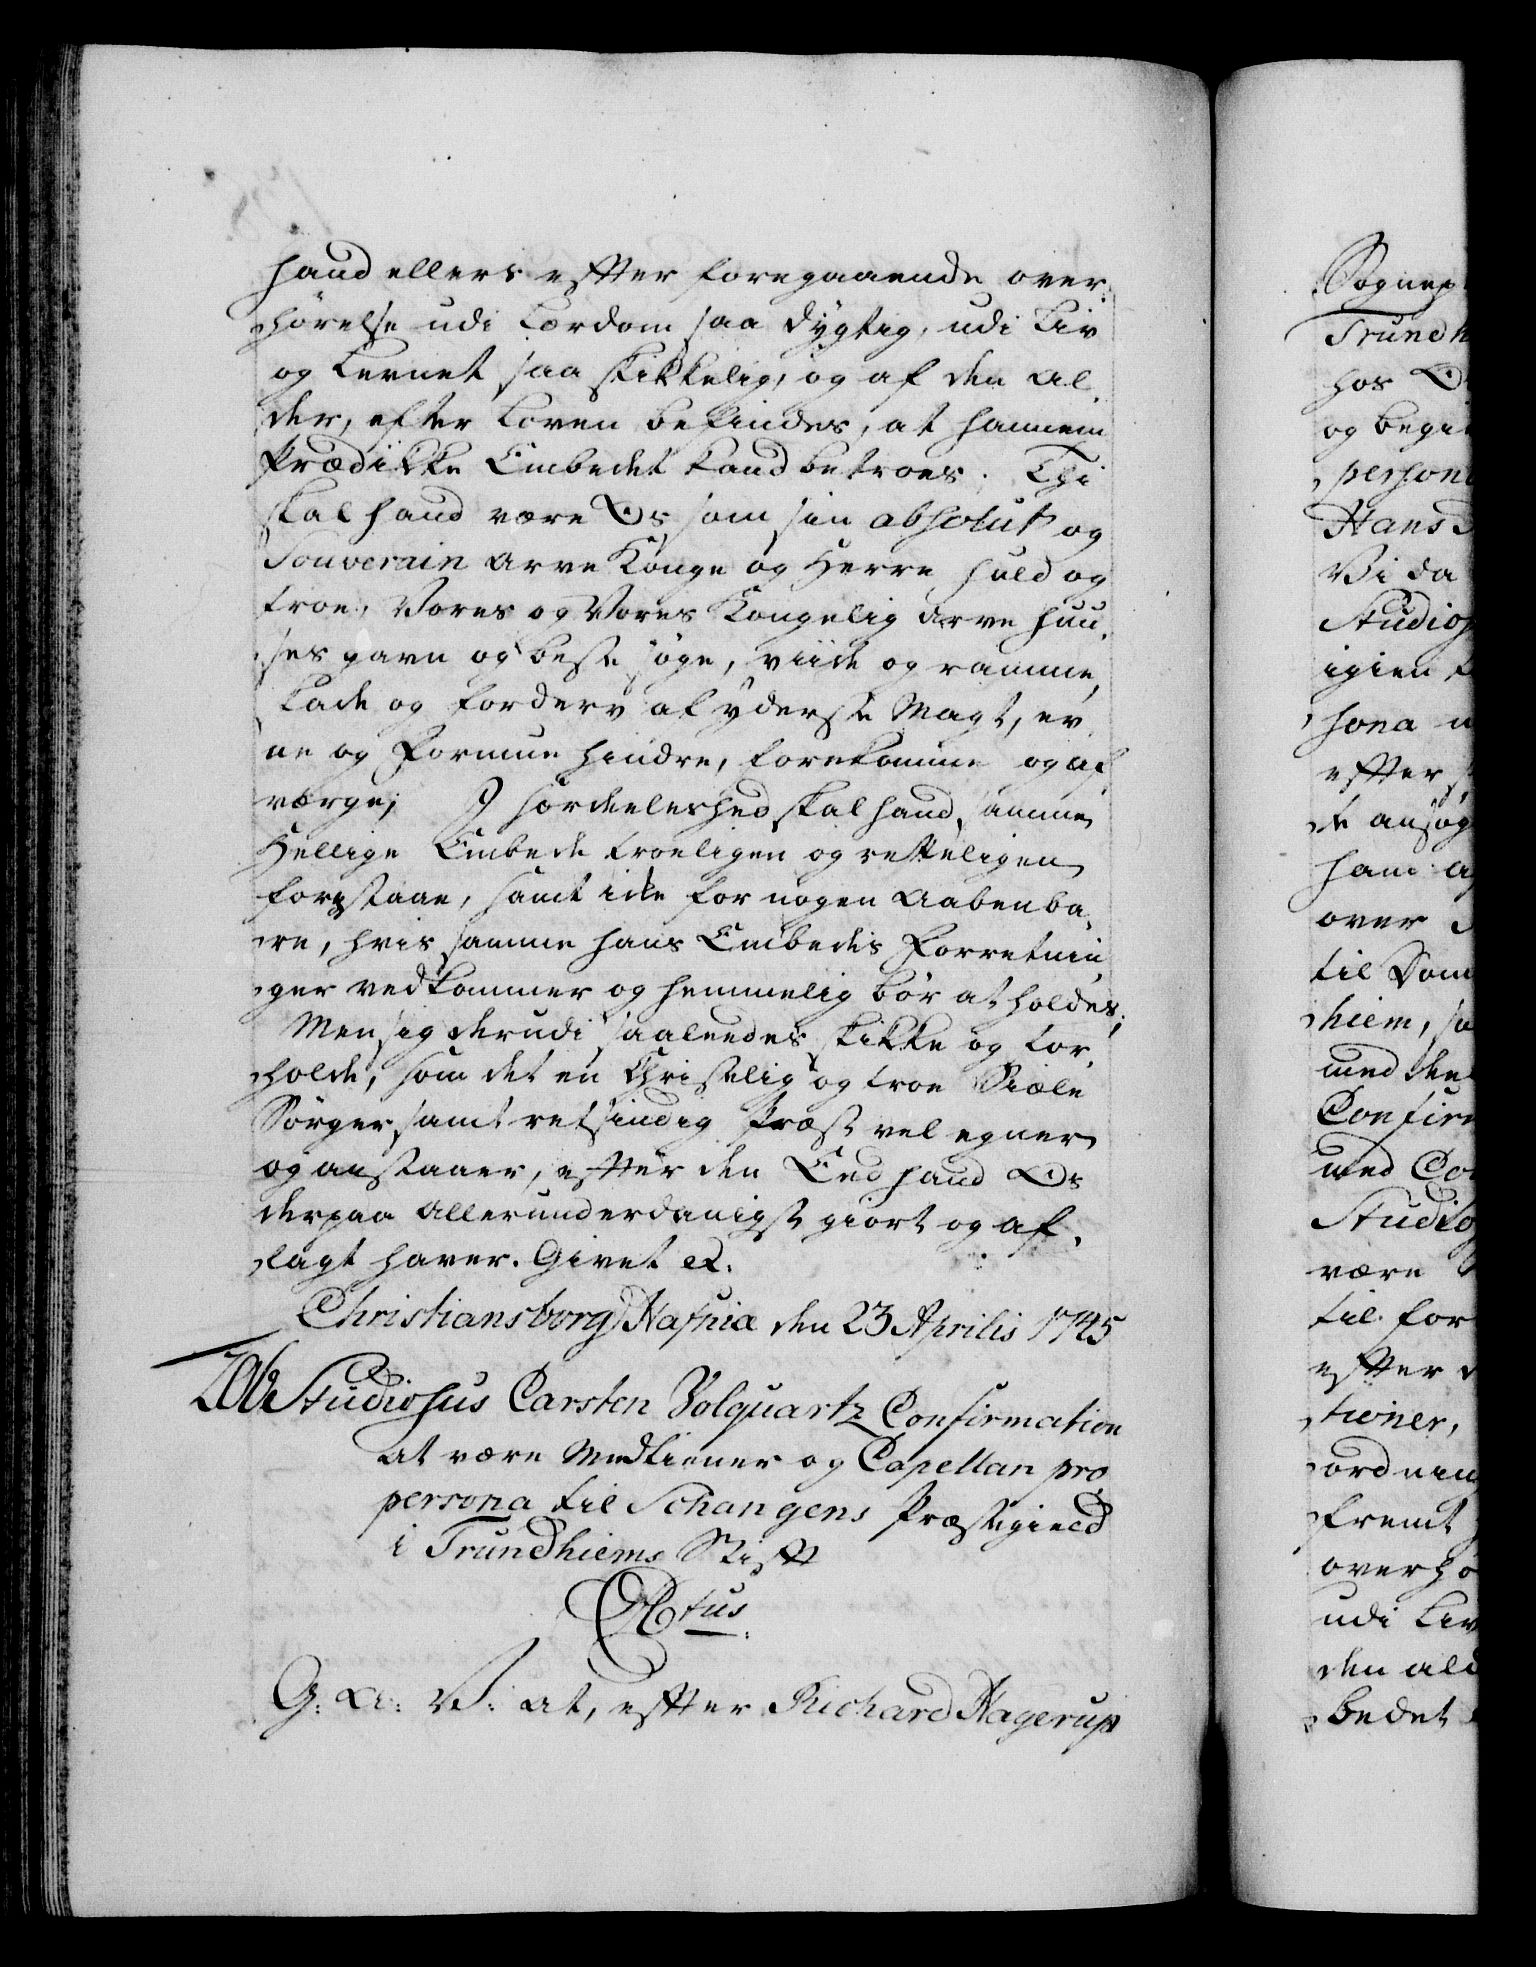 hand ellers effter foregaaende over-
hørelse udi Lærdom saa dygtig, udi Liv
og Levnet saa skikkelig, og af den Al-
der, efter Loven befindes, at hannem
Prædikke Embedet kand betroes. Thi
skal hand være Os, som sin absolut og
Souverain Arve Konge og Herre huld og
troe, Vores og Vores Kongelig Arve Huu-
ses gavn og beste søge, viide og ramme,
skade og forderv af yderste Magt, ev-
ne og Formue hindre, forekomme og af-
værge; I særdeleshed skal hand, samme
Hellige Embede troeligen og retteligen
forestaae, samt icke for nogen Aabenba-
re, hvis samme hans Embedis Forretnin-
ger vedkommer og hemmelig bør at holdes;
Men sig derudi saaledes skikke og for-
holde, som det en Christelig og troe Siæle
Sørger samt retsindig Præst vel egner
og anstaaer, effter den Eed hand Os
derpaa Allerunderdanigst giort og af-
lagt haver. Givet &c.
Christiansborg, Hafnia den 23 Aprilis 1745
Studiosus Carsten Volquartz Confirmation
at være Medtiener og Capellan pro
persona til Schangens Præstegield
i Trundhiems Stifft
G: A: V: at, effter Richard Hagerup
Sognep
Trundh
hos O
og begi
person
Hans
Vi da
Studios
igien
sona
effter
de ansøg
ham
over
til Dom
hiem, sa
med den
Confirm
med Co
Studio
være
til for
effter
tioner,
ordnin
fremt
overhø
udi Liv
den ald
bedet